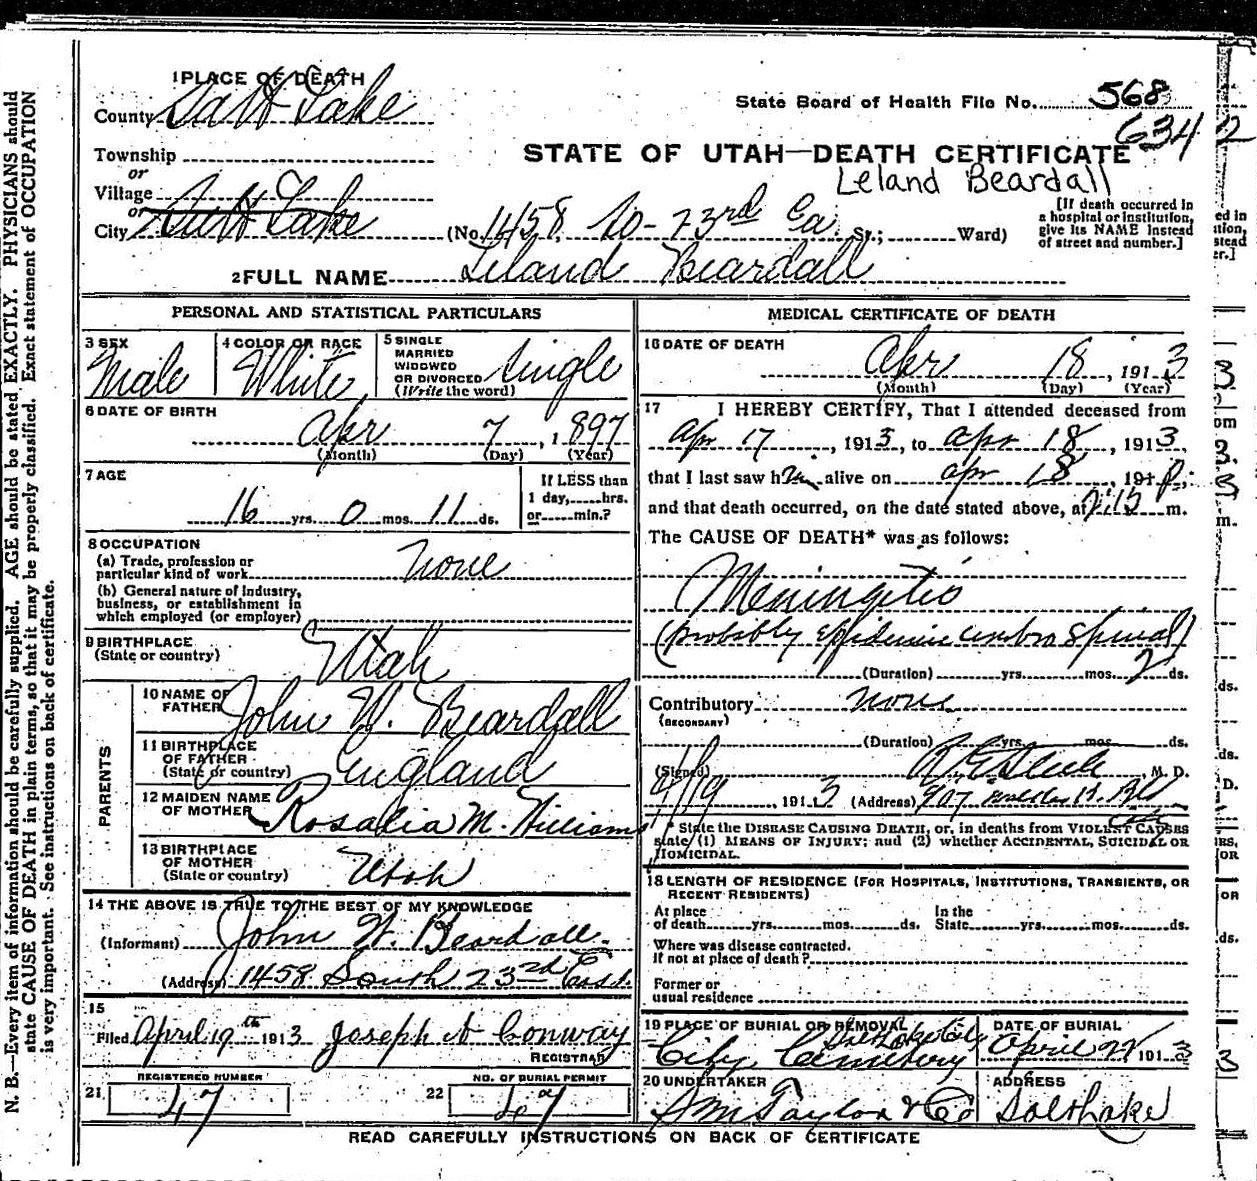 1 PLACE OF DEATH
County Salt Lake
State Board of Health File No. 568
634
Township
or
Village
or
City Salt Lake
STATE OF UTAH—DEATH CERTIFICATE
Leland Beardall
(No. 1458 So - 23rd Ea St.; Ward)
[If death occurred in
a hospital or institution,
give its NAME instead
of street and number.]
2 FULL NAME Leland Beardall
PERSONAL AND STATISTICAL PARTICULARS
3 SEX
Male
4 COLOR OR RACE
White
5 SINGLE
MARRIED
WIDOWED
OR DIVORCED
(Write the word)
Single
6 DATE OF BIRTH
Apr 7, 1897
(Month) (Day) (Year)
7 AGE
16 yrs. 0 mos. 11 ds.
If LESS than
1 day, hrs.
or min.?
8 OCCUPATION
(a) Trade, profession or
particular kind of work none
(b) General nature of industry,
business, or establishment in
which employed (or employer)
9 BIRTHPLACE
(State or country)
Utah
PARENTS
10 NAME OF
FATHER
John W. Beardall
11 BIRTHPLACE
OF FATHER
(State or country)
England
12 MAIDEN NAME
OF MOTHER
Rosalia M. Williams
13 BIRTHPLACE
OF MOTHER
(State or country)
Utah
14 THE ABOVE IS TRUE TO THE BEST OF MY KNOWLEDGE
(Informant) John W. Beardall
(Address) 1458 South 23rd East.
15
Filed April 19th 1913 Joseph H Conway
REGISTRAR
REGISTERED NUMBER
21 47
NO. OF BURIAL PERMIT
22 47
MEDICAL CERTIFICATE OF DEATH
16 DATE OF DEATH
Apr 18, 1913
(Month) (Day) (Year)
17 I HEREBY CERTIFY, That I attended deceased from
Apr 17, 1913, to Apr 18, 1913,
that I last saw him alive on Apr 18 191
and that death occurred, on the date stated above, at 7:15 m.
The CAUSE OF DEATH* was as follows:
Meningitis
(probably Epidemic cerebro Spinal)
(Duration) yrs. mos. 2 ds.
Contributory none
(SECONDARY)
(Duration) yrs. mos. ds.
(Signed) M. D.
4/19, 1913 (Address) 907
* State the DISEASE CAUSING DEATH, or, in deaths from VIOLENT CAUSES
state (1) MEANS OF INJURY; and (2) whether ACCIDENTAL, SUICIDAL OR
HOMICIDAL.
18 LENGTH OF RESIDENCE (FOR HOSPITALS, INSTITUTIONS, TRANSIENTS, OR
RECENT RESIDENTS)
At place
of death yrs. mos. ds.
In the
State yrs. mos. ds.
Where was disease contracted.
if not at place of death?
Former or
usual residence
19 PLACE OF BURIAL OR REMOVAL
Salt Lake City
City Cemetery
DATE OF BURIAL
April 22 1913
20 UNDERTAKER
S M Taylor & Co
ADDRESS
Salt Lake
READ CAREFULLY INSTRUCTIONS ON BACK OF CERTIFICATE
N. B.—Every item of information should be carefully supplied. AGE should be stated EXACTLY. PHYSICIANS should
state CAUSE OF DEATH in plain terms, so that it may be properly classified. Exact statement of OCCUPATION
is very important. See instructions on back of certificate.